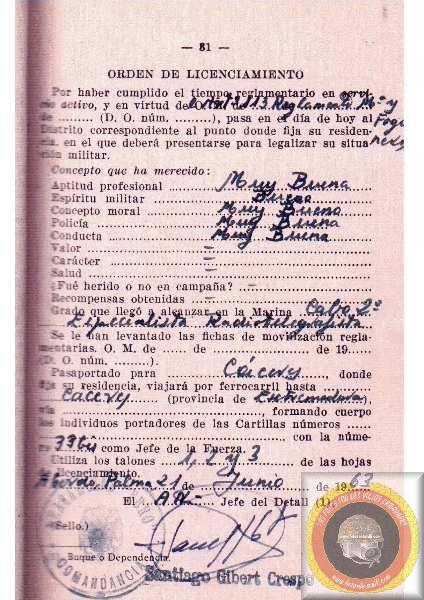 — 81 —
ORDEN DE LICENCIAMIENTO
Por haber cumplido el tiempo reglamentario en servi-
cio activo, y en virtud de
de ......... (D. O. núm. .........), pasa en el día de hoy al
Distrito correspondiente al punto donde fija su residen-
cia, en el que deberá presentarse para legalizar su situa-
ción militar.
Concepto que ha merecido:
Aptitud profesional Muy Buena
Espíritu militar Buena
Concepto moral Muy Buena
Policía Muy Buena
Conducta Muy Buena
Valor —
Carácter —
Salud —
¿Fué herido o no en campaña? —
Recompensas obtenidas —
Grado que llegó a alcanzar en la Marina Cabo 2º
Especialista Radiotelegrafista
Se le han levantado las fichas de movilización regla-
mentarias. O. M. de ...... de ............ de 19......
(D. O. núm. ........).
Pasaportado para Cáceres, donde
fija su residencia, viajará por ferrocarril hasta
Cáceres (provincia de Extremadura),
vía ............, formando cuerpo
los individuos portadores de las Cartillas números
con la núme-
como Jefe de la Fuerza.
Utiliza los talones 1, 2 y 3 de las hojas
licenciamiento.
A bordo, Palma 21 de Junio de 1963
El Jefe del Detall (1)
(Sello.)
Buque o Dependencia.
COMANDANCIA
Santiago Gibert Crespo